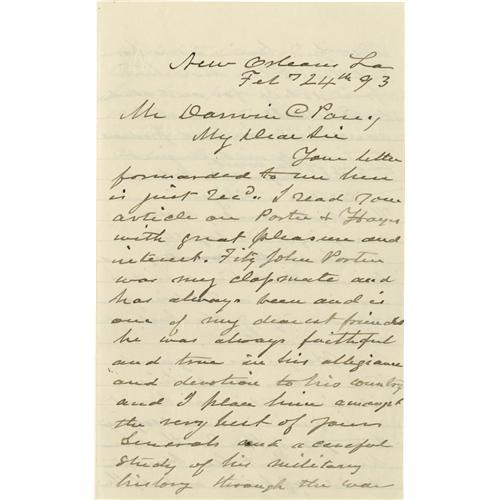 New Orleans La
Feb 24th 93
Mr Darwin C Pavey
My Dear Sir
Your letter
forwarded to me here
is just recd. I read your
article on Porter & Hayes
with great pleasure and
interest. Fitz John Porter
was my classmate and
has always been and is
one of my dearest friends
he was always faithful
and true in his allegiance
and devotion to his country
and I place him amongst
the very best of yours
Generals and a careful
study of his military
history through the war